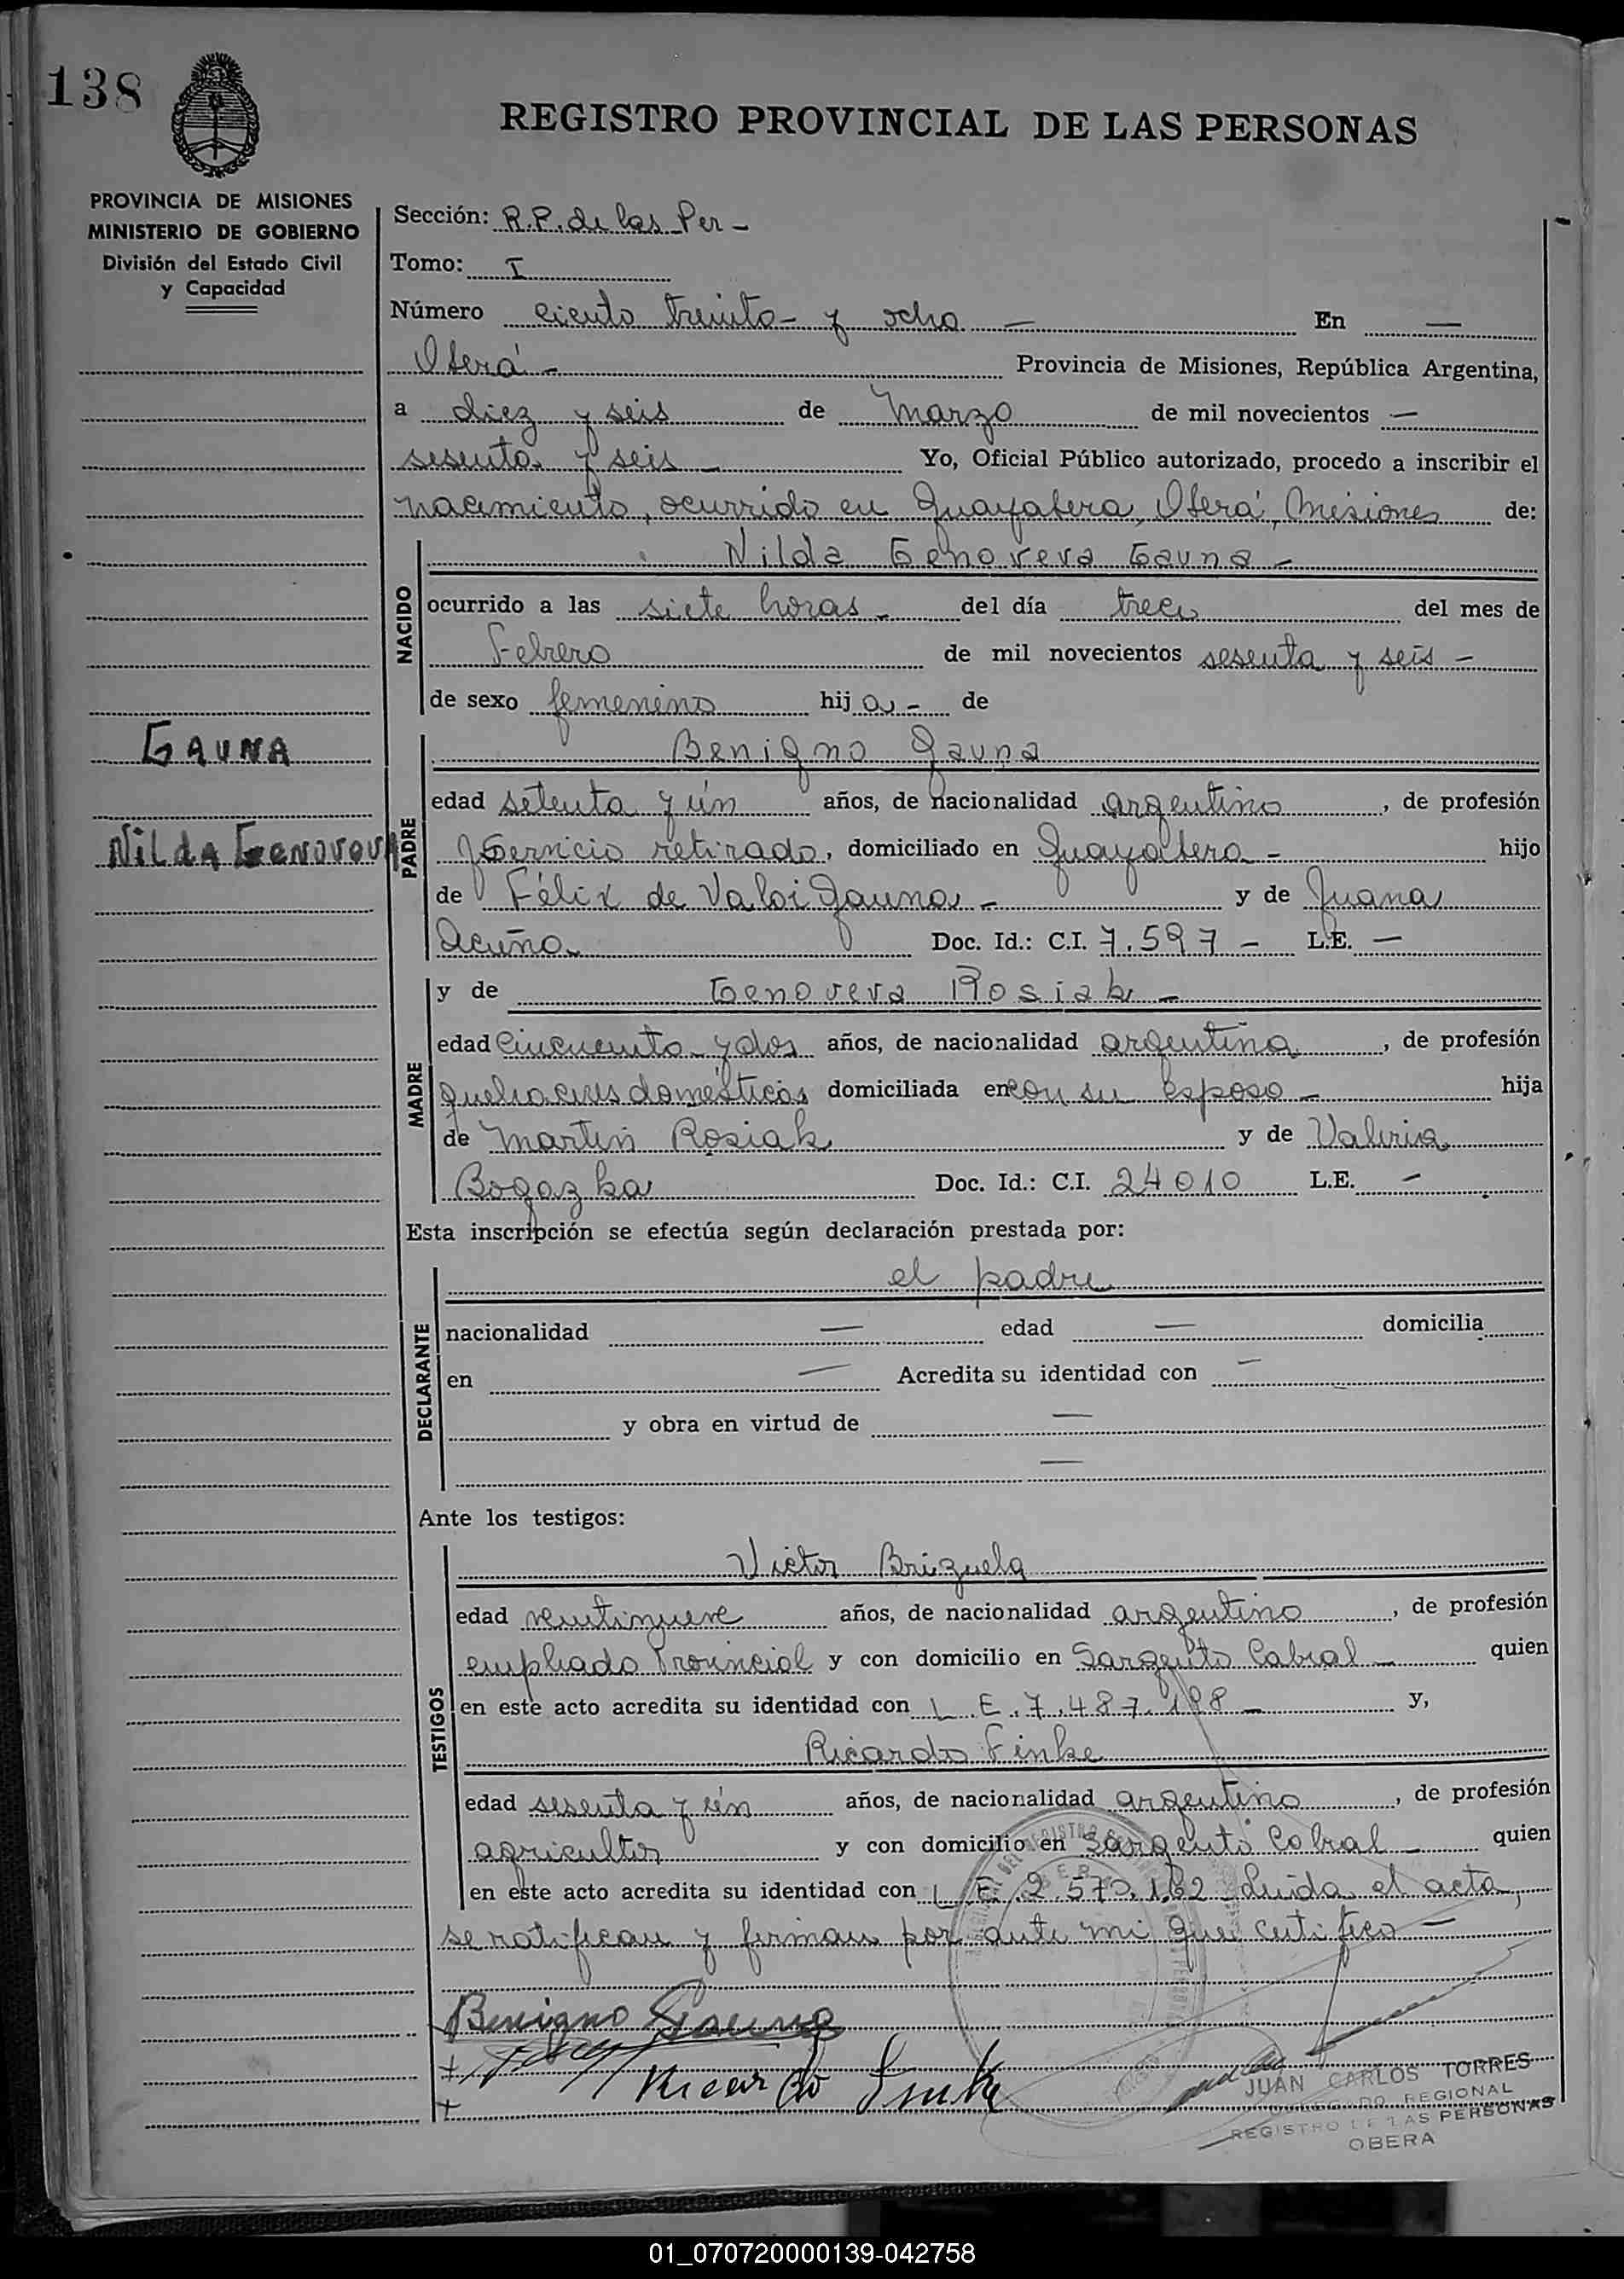 138
REGISTRO PROVINCIAL DE LAS PERSONAS
PROVINCIA DE MISIONES
MINISTERIO DE GOBIERNO
División del Estado Civil
y Capacidad
Sección: R.P. de las Per -
Tomo: I
Número ciento treinta y ocho — En —
Oberá - Provincia de Misiones, República Argentina,
a diez y seis de Marzo de mil novecientos —
sesenta y seis - Yo, Oficial Público autorizado, procedo a inscribir el
nacimiento, ocurrido en Guayabera, Oberá, Misiones de:
Nilda Genoveva Gauna -
NACIDO
ocurrido a las siete horas - del día trece del mes de
Febrero de mil novecientos sesenta y seis -
de sexo femenino hija - de
GAUNA
Nilda Genovova
PADRE
Benigno Gauna
edad setenta y ún años, de nacionalidad argentino, de profesión
Servicio retirado, domiciliado en Guayabera - hijo
de Félix de Valoi Gauna - y de Juana
Acuña Doc. Id.: C.I. 7.597 - L.E. —
y de Genoveva Rosiak -
MADRE
edad cincuenta y dos años, de nacionalidad argentina, de profesión
quehaceres domésticos domiciliada en con su esposo - hija
de Martin Rosiak y de Valeria
Bogazka Doc. Id.: C.I. 24010 L.E. -
Esta inscripción se efectúa según declaración prestada por:
el padre
DECLARANTE
nacionalidad — edad — domicilia
en — Acredita su identidad con —
y obra en virtud de —
—
Ante los testigos:
TESTIGOS
Victor Brizuela
edad veintinueve años, de nacionalidad argentino, de profesión
empleado Provincial y con domicilio en Sargento Cabral - quien
en este acto acredita su identidad con L.E. 7.487.198 - y,
Ricardo Finke
edad sesenta y ún años, de nacionalidad argentino, de profesión
agricultor y con domicilio en Sargento Cabral - quien
en este acto acredita su identidad con L.E. 2.573.162 - Leida el acta,
se ratifican y firman por ante mi que certifico -
Benigno Gauna
Ricardo Finke
JUAN CARLOS TORRES
DELEGADO REGIONAL
REGISTRO DE LAS PERSONAS
OBERA
01_070720000139-042758